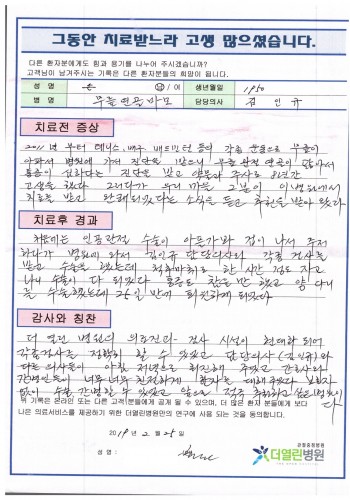 그동안 치료받느라 고생 많으셨습니다.
다른 환자분에게도 힘과 용기를 나누어 주시겠습니까?
고객님이 남겨주시는 기록은 다른 환자분들의 희망이 됩니다.
성 명 남/여 생년월일 1950
병 명 무릎연골마모 담당의사 김인규
치료전 증상
2011년 부터 테니스, 배구 배드민턴 등의 각종 운동으로 무릎이
아파서 병원에 가서 진단을 받으니 무릎 관절 연골이 닳아서
통증이 심하다는 진단을 받고 약물과 주사로 8년간
고생을 했다. 그러다가 우리 마을 2분이 이 병원에서
치료를 받고 완쾌되었다는 소식을 듣고 추천을 받아 왔다.
치료후 경과
처음에는 인공관절 수술이 아픈가봐 겁이 나서 주저
하다가 병원에 와서 김인규 담당의사의 각종 검사를
받고 수술을 했는데 척추마취로 한 시간 정도 자고
나니 수술이 다 되었다. 통증도 참을만 했고 양 다리
를 수술했는데 25일 만에 퇴원하게 되었다.
감사와 칭찬
더 열린 병원의 의료진과 검사 시설이 현대화 되어
각종검사는 정확히 할 수 있었고 담당의사(김인규)와
다른 의사들이 아침 저녁으로 회진해 주셨고 간호사와
간병인들이 너무 너무 친절하게 환자를 대해주셨다. 보호자
없이 수술 간병할 수 있었고 앞으로 적극 추천하고 싶은 병원이
다
위 기록은 온라인 또는 다른 고객분들에게 공개 될 수 있으며, 더 많은 환자 분들에게 보다
나은 의료서비스를 제공하기 위한 더열린병원만의 연구에 사용 되는 것을 동의합니다.
2019년 2월 25일
성명 :
관절중점병원
더열린병원